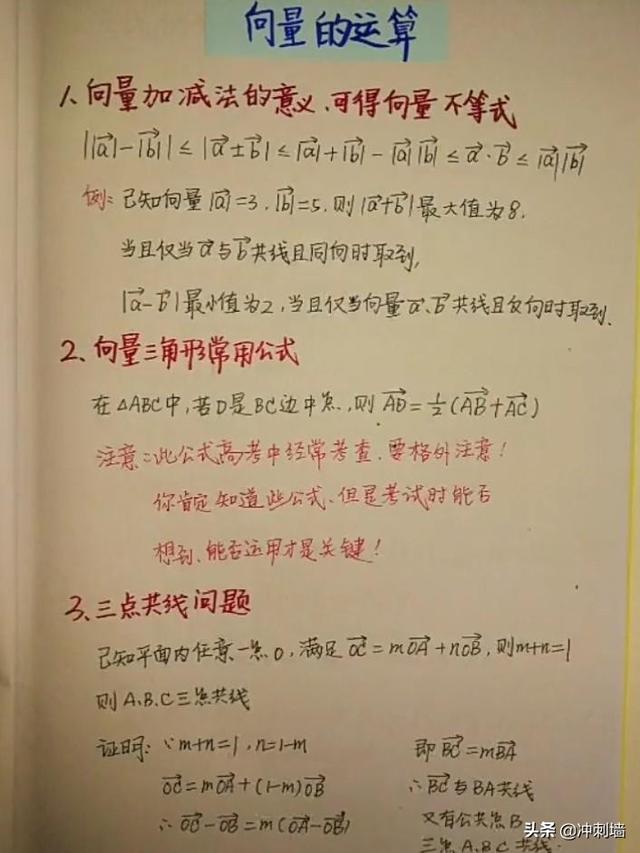 向量的运算
1、向量加减法的意义、可得向量不等式
||a⃗|-|b⃗|| ≤ |a⃗±b⃗| ≤ |a⃗|+|b⃗| - |a⃗||b⃗| ≤ a⃗·b⃗ ≤ |a⃗||b⃗|
例: 已知向量 |a⃗|=3、|b⃗|=5、则 |a⃗+b⃗| 最大值为8.
当且仅当 a⃗ 与 b⃗ 共线且同向时取到,
|a⃗-b⃗| 最小值为2, 当且仅当向量 a⃗、b⃗ 共线且反向时取到.
2、向量三角形常用公式
在△ABC中, 若D是BC边中点, 则 AD⃗ = ½(AB⃗+AC⃗)
注意: 此公式高考中经常考查、要格外注意!
你肯定知道这些公式、但是考试时能否
想到、能否运用才是关键!
3、三点共线问题
已知平面内任意一点O, 满足 OC⃗ = mOA⃗ + nOB⃗, 则m+n=1
则A.B.C三点共线
证明: ∵m+n=1, n=1-m
OC⃗ = mOA⃗ + (1-m)OB⃗
∴ OC⃗ - OB⃗ = m(OA⃗-OB⃗)
即 BC⃗ = mBA⃗
∴ BC⃗ 与 BA共线
又有公共点B
三点A.B.C共线.
头条 @冲刺墙